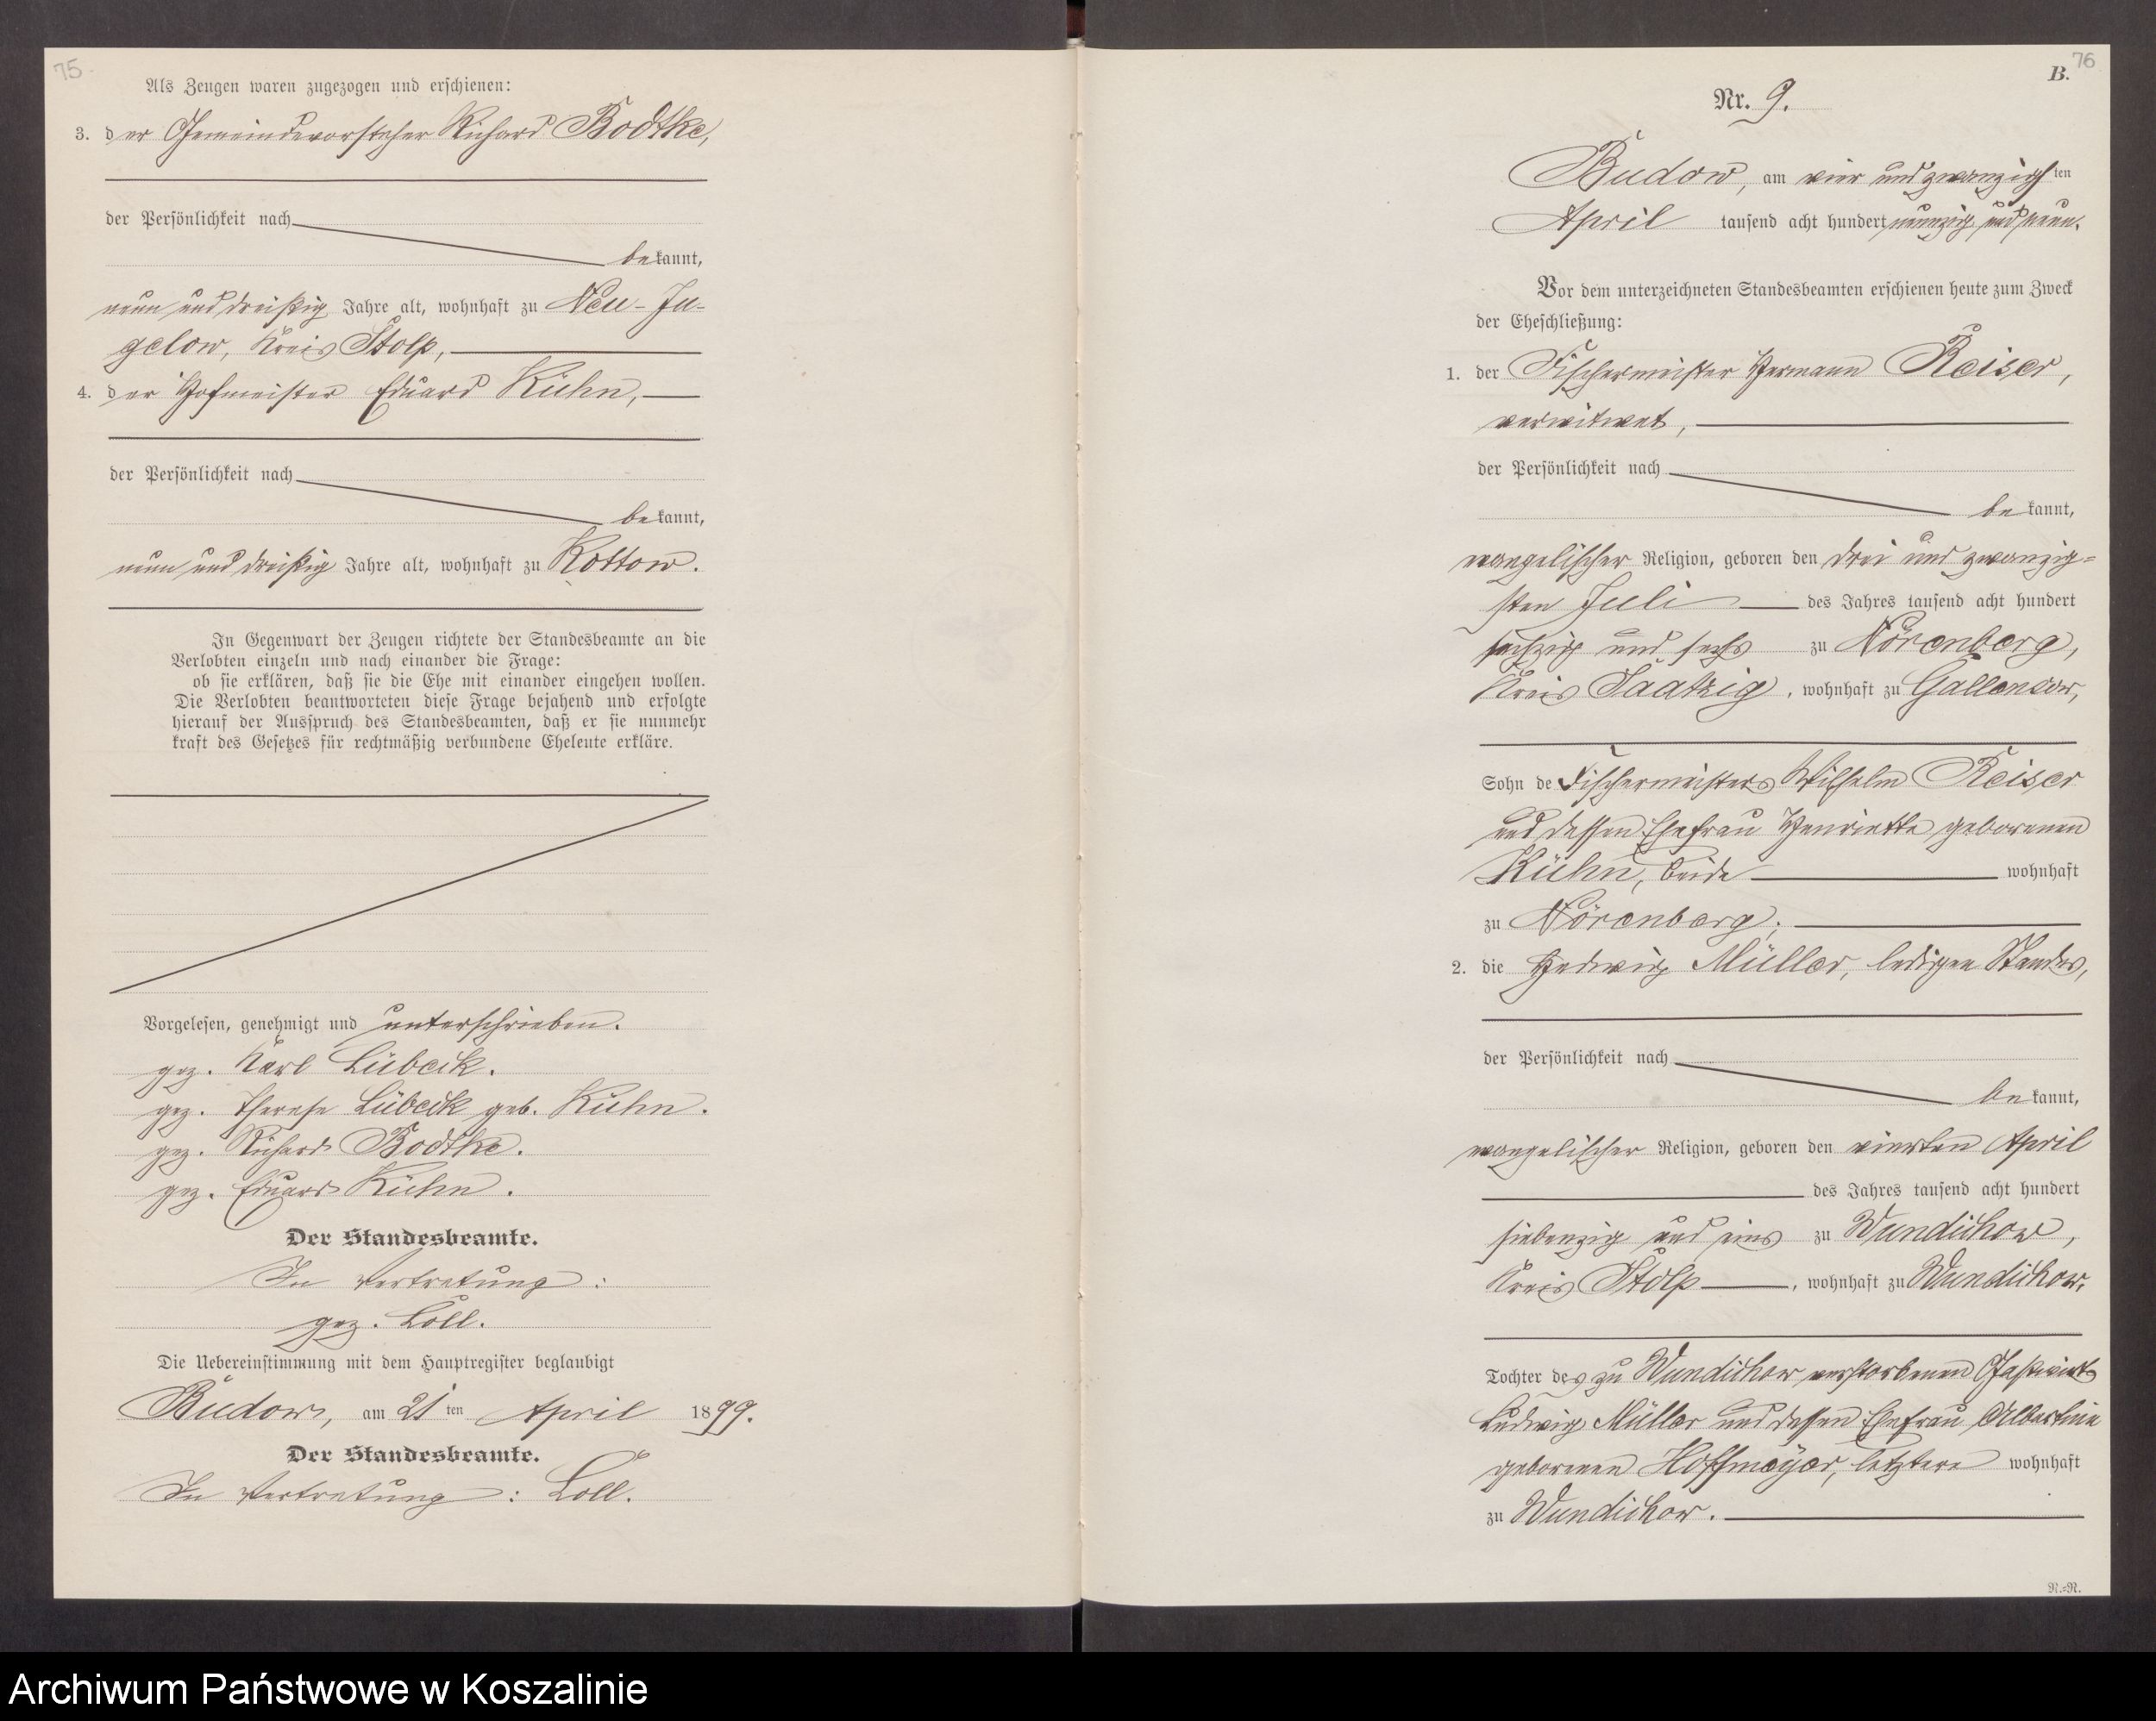 75.
Als Zeugen waren zugezogen und erschienen:
3. der Gemeindevorsteher Richard Bodtke,
der Persönlichkeit nach
bekannt,
neun und dreißig Jahre alt, wohnhaft zu Neu-Ju-
gelow, Kreis Stolp,
4. der Hofmeister Eduard Kühn,
der Persönlichkeit nach
bekannt,
neun und dreißig Jahre alt, wohnhaft zu Kottow.
In Gegenwart der Zeugen richtete der Standesbeamte an die
Verlobten einzeln und nach einander die Frage:
ob sie erklären, daß sie die Ehe mit einander eingehen wollen.
Die Verlobten beantworteten diese Frage bejahend und erfolgte
hierauf der Ausspruch des Standesbeamten, daß er sie nunmehr
kraft des Gesetzes für rechtmäßig verbundene Eheleute erkläre.
Vorgelesen, genehmigt und unterschrieben.
gez. Karl Lübeck.
gez. Therese Lübeck geb. Kühn.
gez. Richard Bodtke.
gez. Eduard Kühn.
Der Standesbeamte.
In Vertretung:
gez. Loll.
Die Uebereinstimmung mit dem Hauptregister beglaubigt
Budow, am 21ten April 1899.
Der Standesbeamte.
In Vertretung: Loll.
76
B.
Nr. 9.
Budow, am vier und zwanzigsten
April tausend acht hundert neunzig und neun.
Vor dem unterzeichneten Standesbeamten erschienen heute zum Zweck
der Eheschließung:
1. der Fischermeister Hermann Reiser,
verwitwet,
der Persönlichkeit nach
bekannt,
evangelischer Religion, geboren den drei und zwanzig=
sten Juli des Jahres tausend acht hundert
sechzig und sechs zu Nörenberg,
Kreis Saatzig, wohnhaft zu Gallensow,
Sohn de Fischermeisters Wilhelm Reiser
und dessen Ehefrau Henriette geborenen
Kühn, beide wohnhaft
zu Nörenberg;
2. die Hedwig Müller, ledigen Standes,
der Persönlichkeit nach
bekannt,
evangelischer Religion, geboren den vierten April
des Jahres tausend acht hundert
siebenzig und eins zu Wundichow,
Kreis Stolp, wohnhaft zu Wundichow.
Tochter des zu Wundichow verstorbenen Gastwirts
Ludwig Müller und dessen Ehefrau Albertine
geborenen Hoffmeyer, letztere wohnhaft
zu Wundichow.
N.=R.
Archiwum Państwowe w Koszalinie